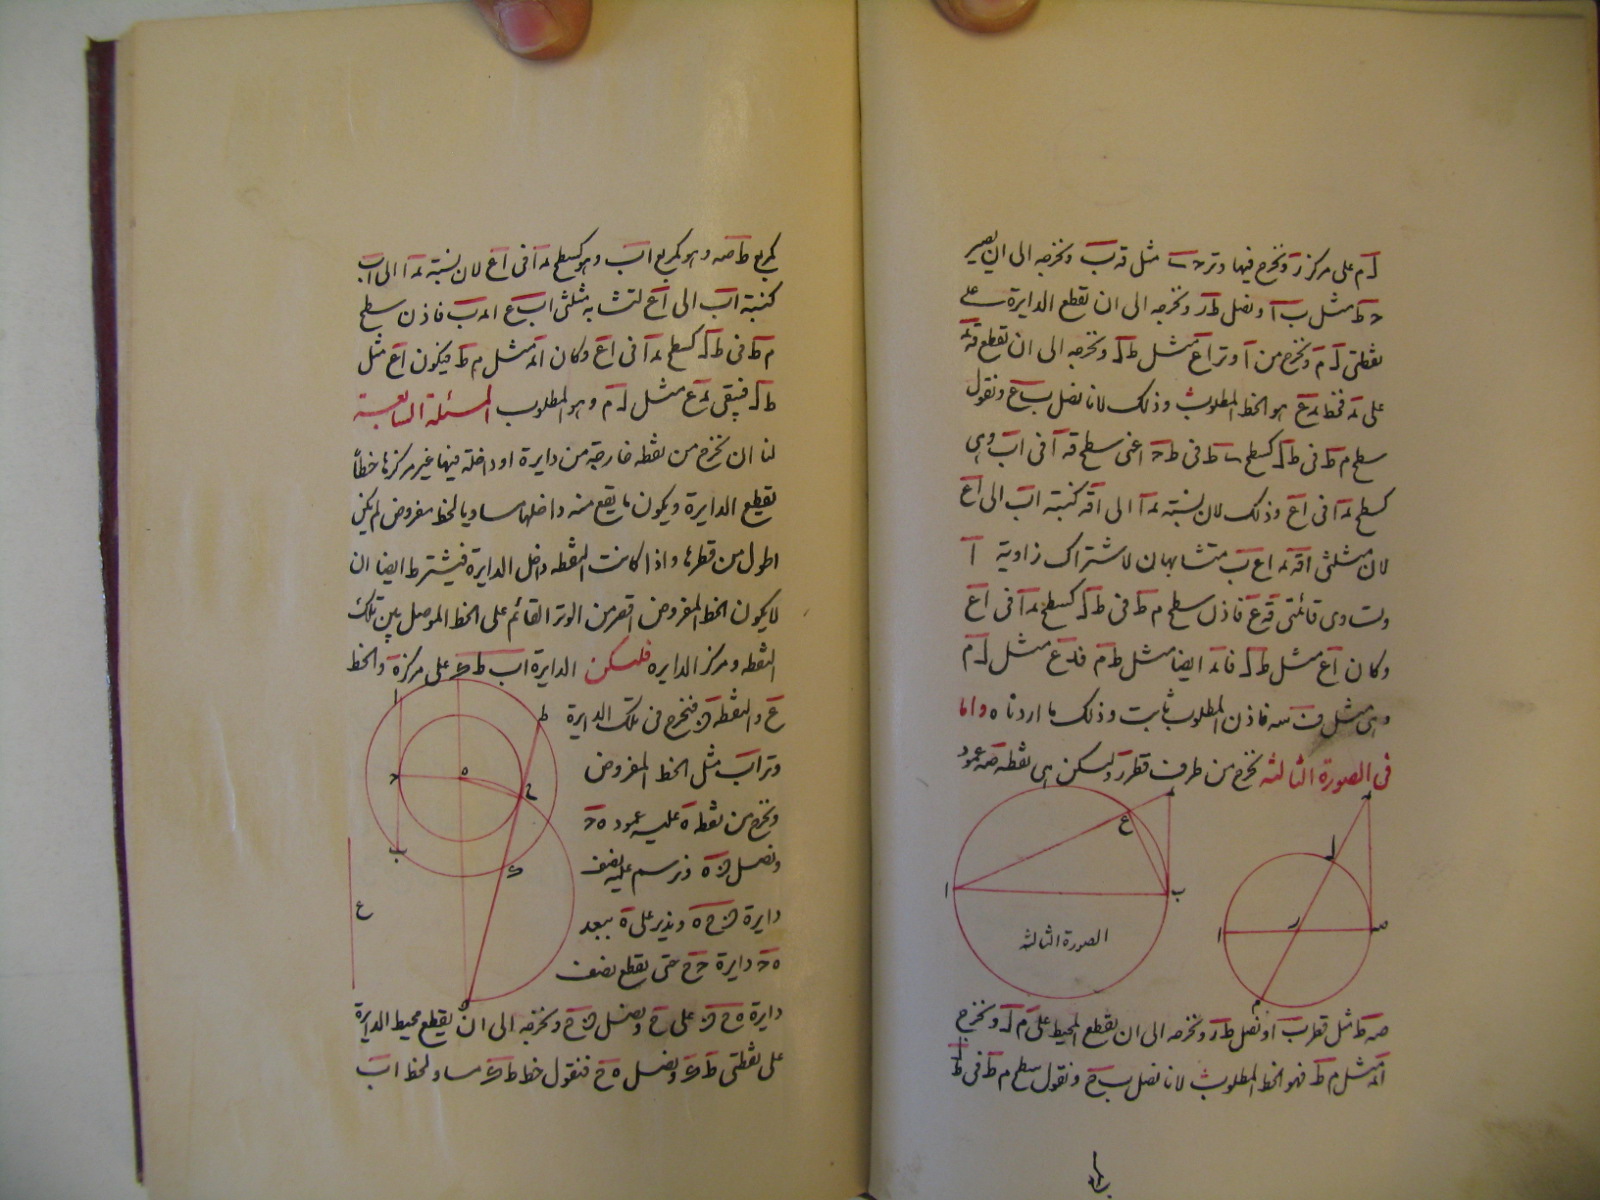 ل م على مركز ز ونخرج فيها وتر ح مثل قه ب ونخرجه الى ان يصير
ح ط مثل ب ا ونصل ط ز ونخرجه الى ان تقطع الدايرة على
نقطتى ل م ونخرج من ا وتر ا ع مثل ط ل ونخرجه الى ان تقطع قه
على فخط ع هو الخط المطلوب وذلك لانا نصل ب ع ونقول
سطح م ط فى ط ل كسطح ط فى ط ح اعنى سطح قه ا فى ا ب وهى
كسطح ا فى ا ع وذلك لان نسبة ا الى ا قه كنسبة ا ب الى ا ع
لان مثلثى ا قه ا ع ب متشابهان لاشتراك زاوية ا
وتساوى قائمتى قه ع فاذن سطح م ط فى ط ل كسطح ا فى ا ع
وكان ا ع مثل ط ل ايضا مثل ط م مثل ل م
وهى مثل ف سه فاذن المطلوب ثابت وذلك ما اردناه واما
فى الصورة الثالثه نخرج من طرف قطر وليكن هى نقطه صه عمود
ا
ع
ب
الصورة الثالثه
ل
ر
ا
صه
م
صه ط مثل قطر ا ب ونصل ط ر ونخرجه الى ان يقطع المحيط على م ل ونخرج
مثل م ط فهو الخط المطلوب لانا نصل ب ع ونقول سطح م ط فى ط
كمربع ط صه وهو كمربع ا ب وهو كسطح ا فى ا ع لان نسبة ا الى ا ب
كنسبة ا ب الى ا ع لتشابه مثلثى ا ب ع ب فاذن سطح
م ط فى ط ل كسطح ا فى ا ع وكان مثل م ط فيكون ا ع مثل
ط ل فيبقى ع مثل ل م وهو المطلوب المسئلة السابعة
لنا ان نخرج من نقطه خارجة من دايرة او داخلة فيها غير مركزها خطاً
تقطيع الدايرة ويكون ما يقع منه داخلها مساويا لخط مفروض لم يكن
اطول من قطرها واذا كانت النقطه داخل الدايرة فيشترط ايضا ان
لا يكون الخط المفروض اقصر من الوتر القائم على الخط الموصل بين تلك
النقطه ومركز الدايره فليكن الدايرة ا ب ط ى على مركز ه والخط
ع والنقطه ن فنخرج فى تلك الدايرة
وتر ا ب مثل الخط المفروض
ونخرج من نقطة ه عليه عمود ه ح
ونصل ن ه ونرسم عليه نصف
دايرة ن خ ه وندير على ه ببعد
ه ح دايرة ح خ حتى يقطع نصف
دايرة ه خ ن على خ ونصل ن خ ونخرجه الى ان يقطع محيط الدايرة
على نقطتى ط ى ونصل ه خ فنقول خط ط ى مساو لخط ا ب
ا
ط
ه
ح
خ
ب
ى
ع
ن